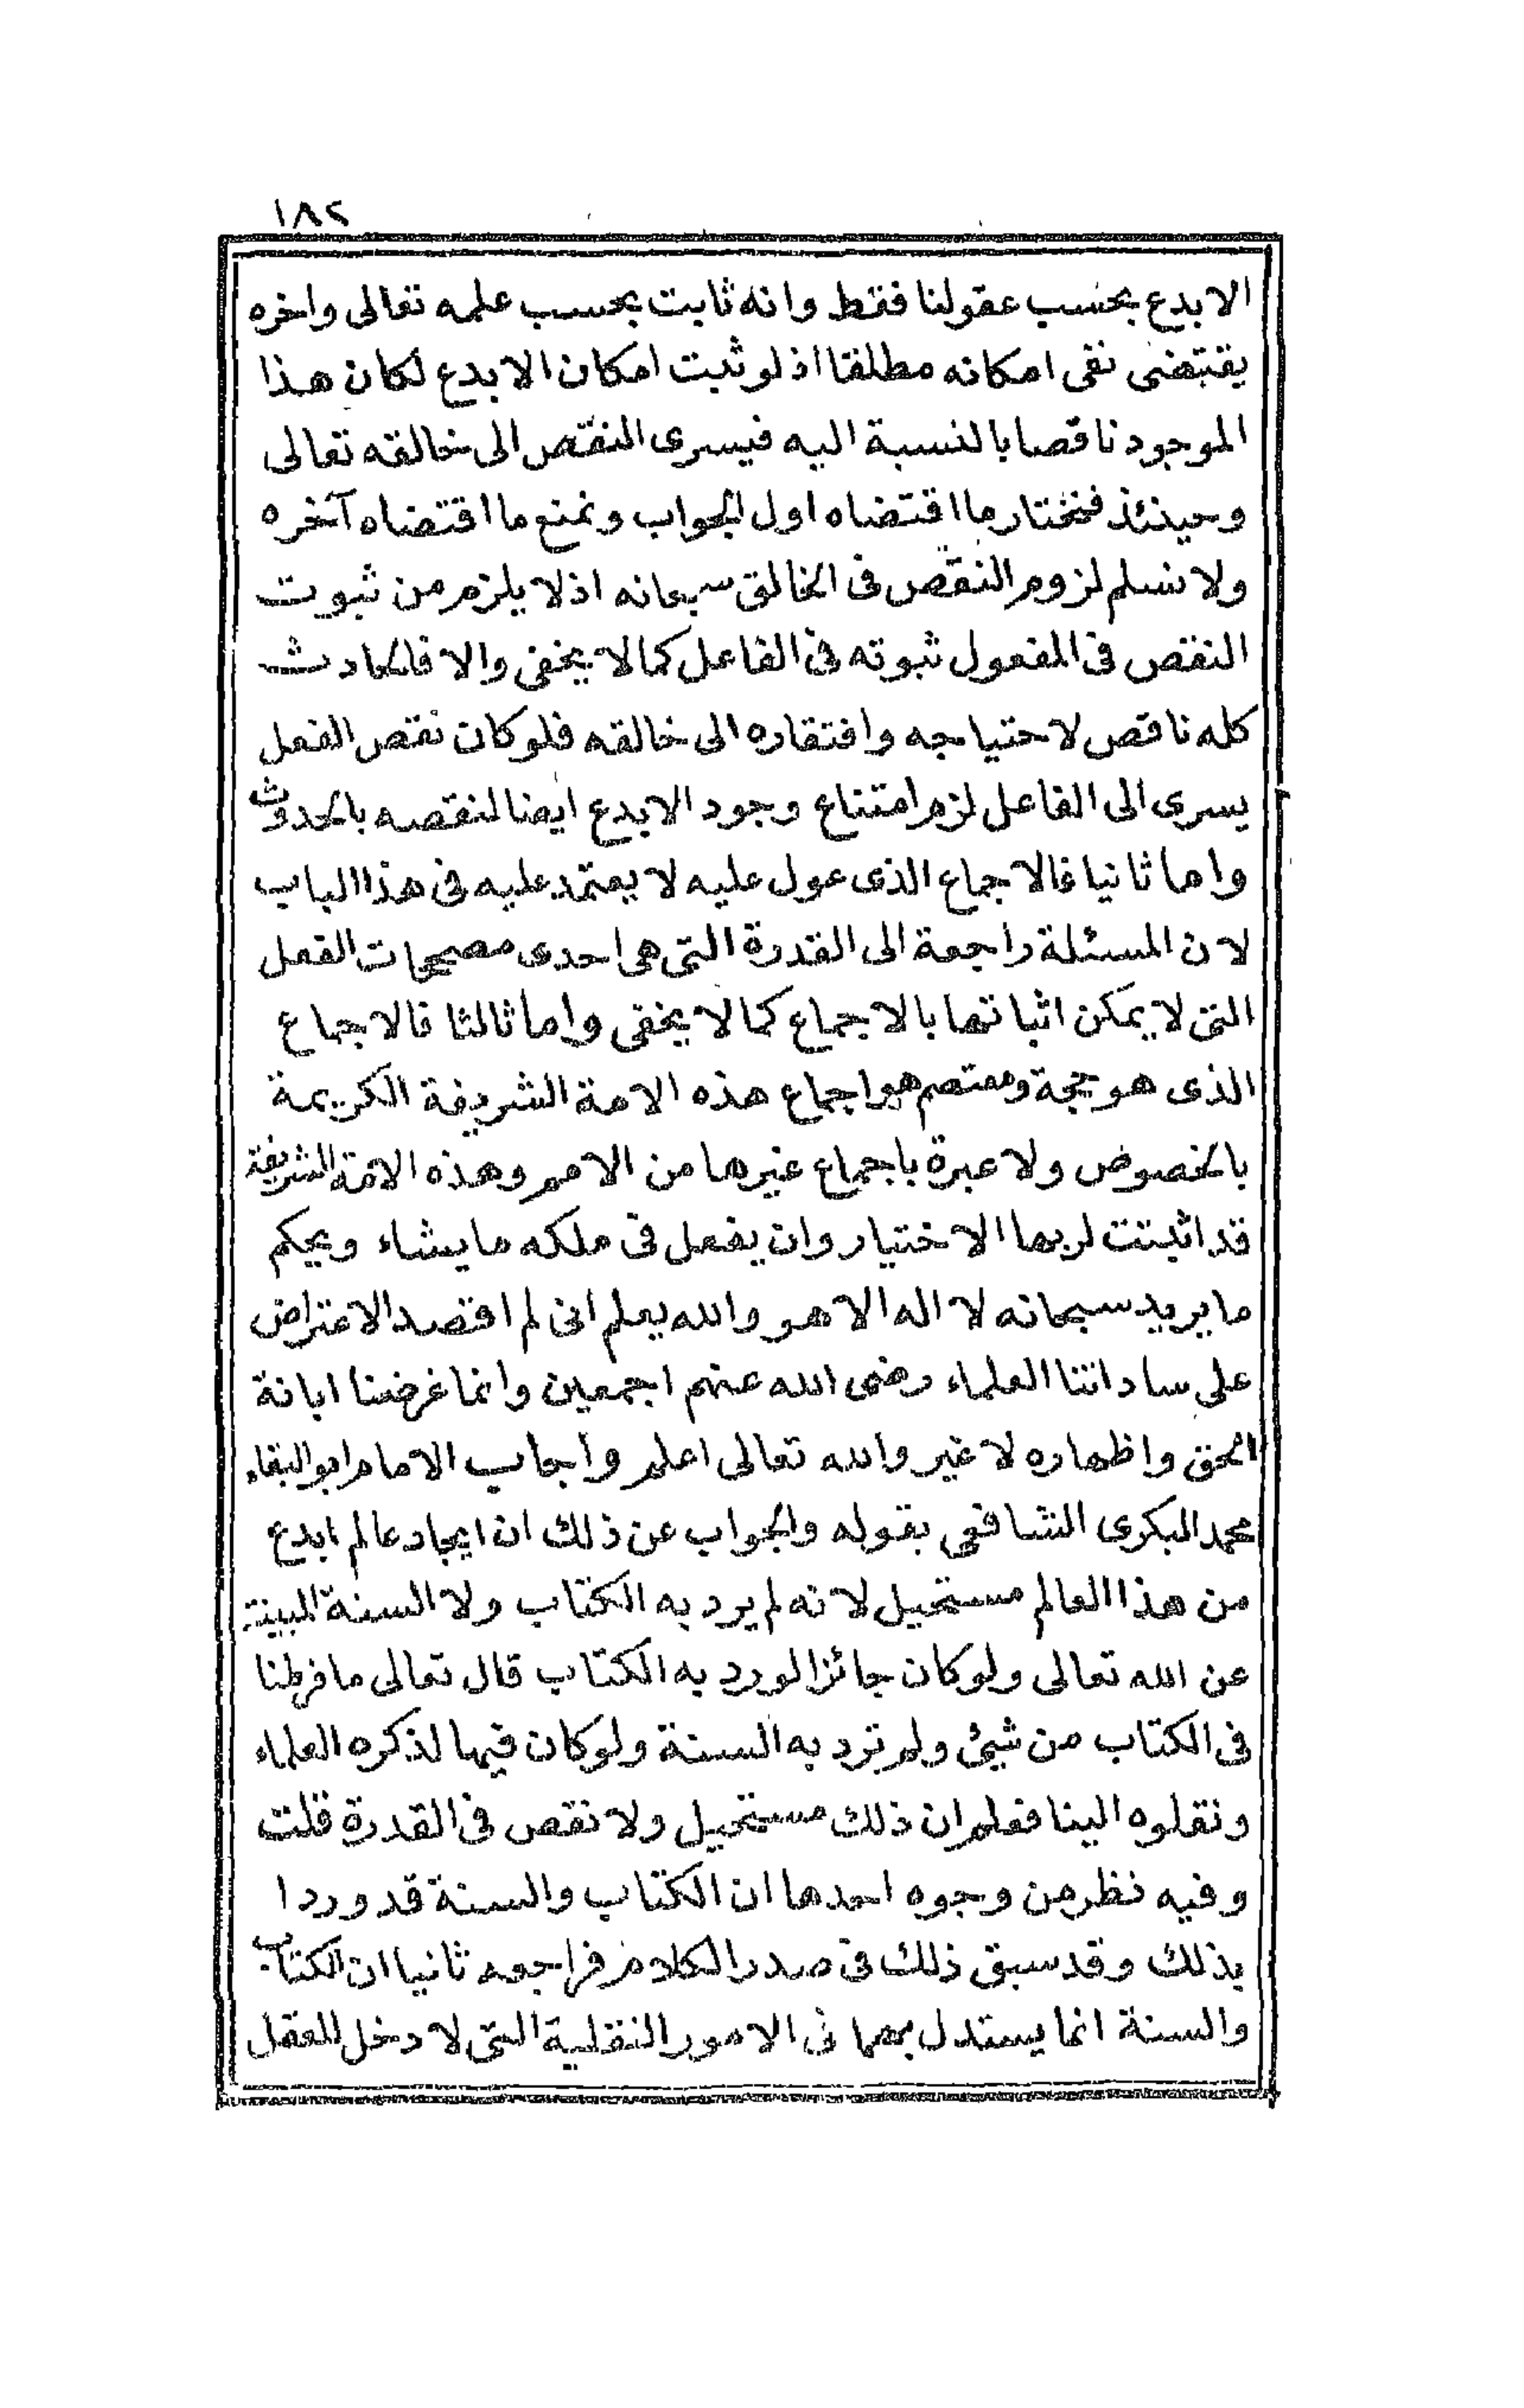 ١٨٢
الابدع بحسب عقولنا فقط وانه ثابت بحسب علمه تعالى واخره
يقتضى نفى امكانه مطلقا اذ لو ثبت امكان الابدع لكان هذا
الموجود ناقصا بالنسبة اليه فيسرى النقص الى خالقه تعالى
وحينئذ فنختار ما اقتضاه اول الجواب ونمنع ما اقتضاه آخره
ولا نسلم لزوم النقص فى الخالق سبحانه اذ لا يلزم من ثبوت
النقص فى المفعول ثبوته فى الفاعل كما لا يخفى والا فالحادث
كله ناقص لاحتياجه وافتقاره الى خالقه فلو كان نقص الفعل
يسرى الى الفاعل لزم امتناع وجود الابدع ايضا لنقصه بالحدوث
واما ثانيا فالاجماع الذى عول عليه لا يعتمد عليه فى هذا الباب
لان المسئلة راجعة الى القدرة التى هى احدى مصححات الفعل
التى لا يمكن اثباتها بالاجماع كما لا يخفى واما ثالثا فالاجماع
الذى هو حجة ومعتصم هو اجماع هذه الامة الشريفة الكريمة
بالخصوص ولا عبرة باجماع غيرها من الامم وهذه الامة الشريفة
قد اثبتت لربها الاختيار وان يفعل فى ملكه ما يشاء ويحكم
ما يريد سبحانه لا اله الا هو والله يعلم انى لم اقصد الاعتراض
على ساداتنا العلماء رضى الله عنهم اجمعين وانما غرضنا ابانة
الحق واظهاره لا غير والله تعالى اعلم واجاب الامام ابو البقاء
محمد البكرى الشافعى بقوله والجواب عن ذلك ان ايجاد عالم ابدع
من هذا العالم مستحيل لانه لم يرد به الكتاب ولا السنة المبينة
عن الله تعالى ولو كان جائزا لورد به الكتاب قال تعالى ما فرطنا
فى الكتاب من شيئ ولم ترد به السنة ولو كان فيها لذكره العلماء
ونقلوه الينا فعلم ان ذلك مستحيل ولا نقص فى القدرة قلت
وفيه نظر من وجوه احدها ان الكتاب والسنة قد وردا
بذلك وقد سبق ذلك فى صدر الكلام فراجعه ثانيا ان الكتاب
والسنة انما يستدل بهما فى الامور النقلية التى لا دخل للعقل